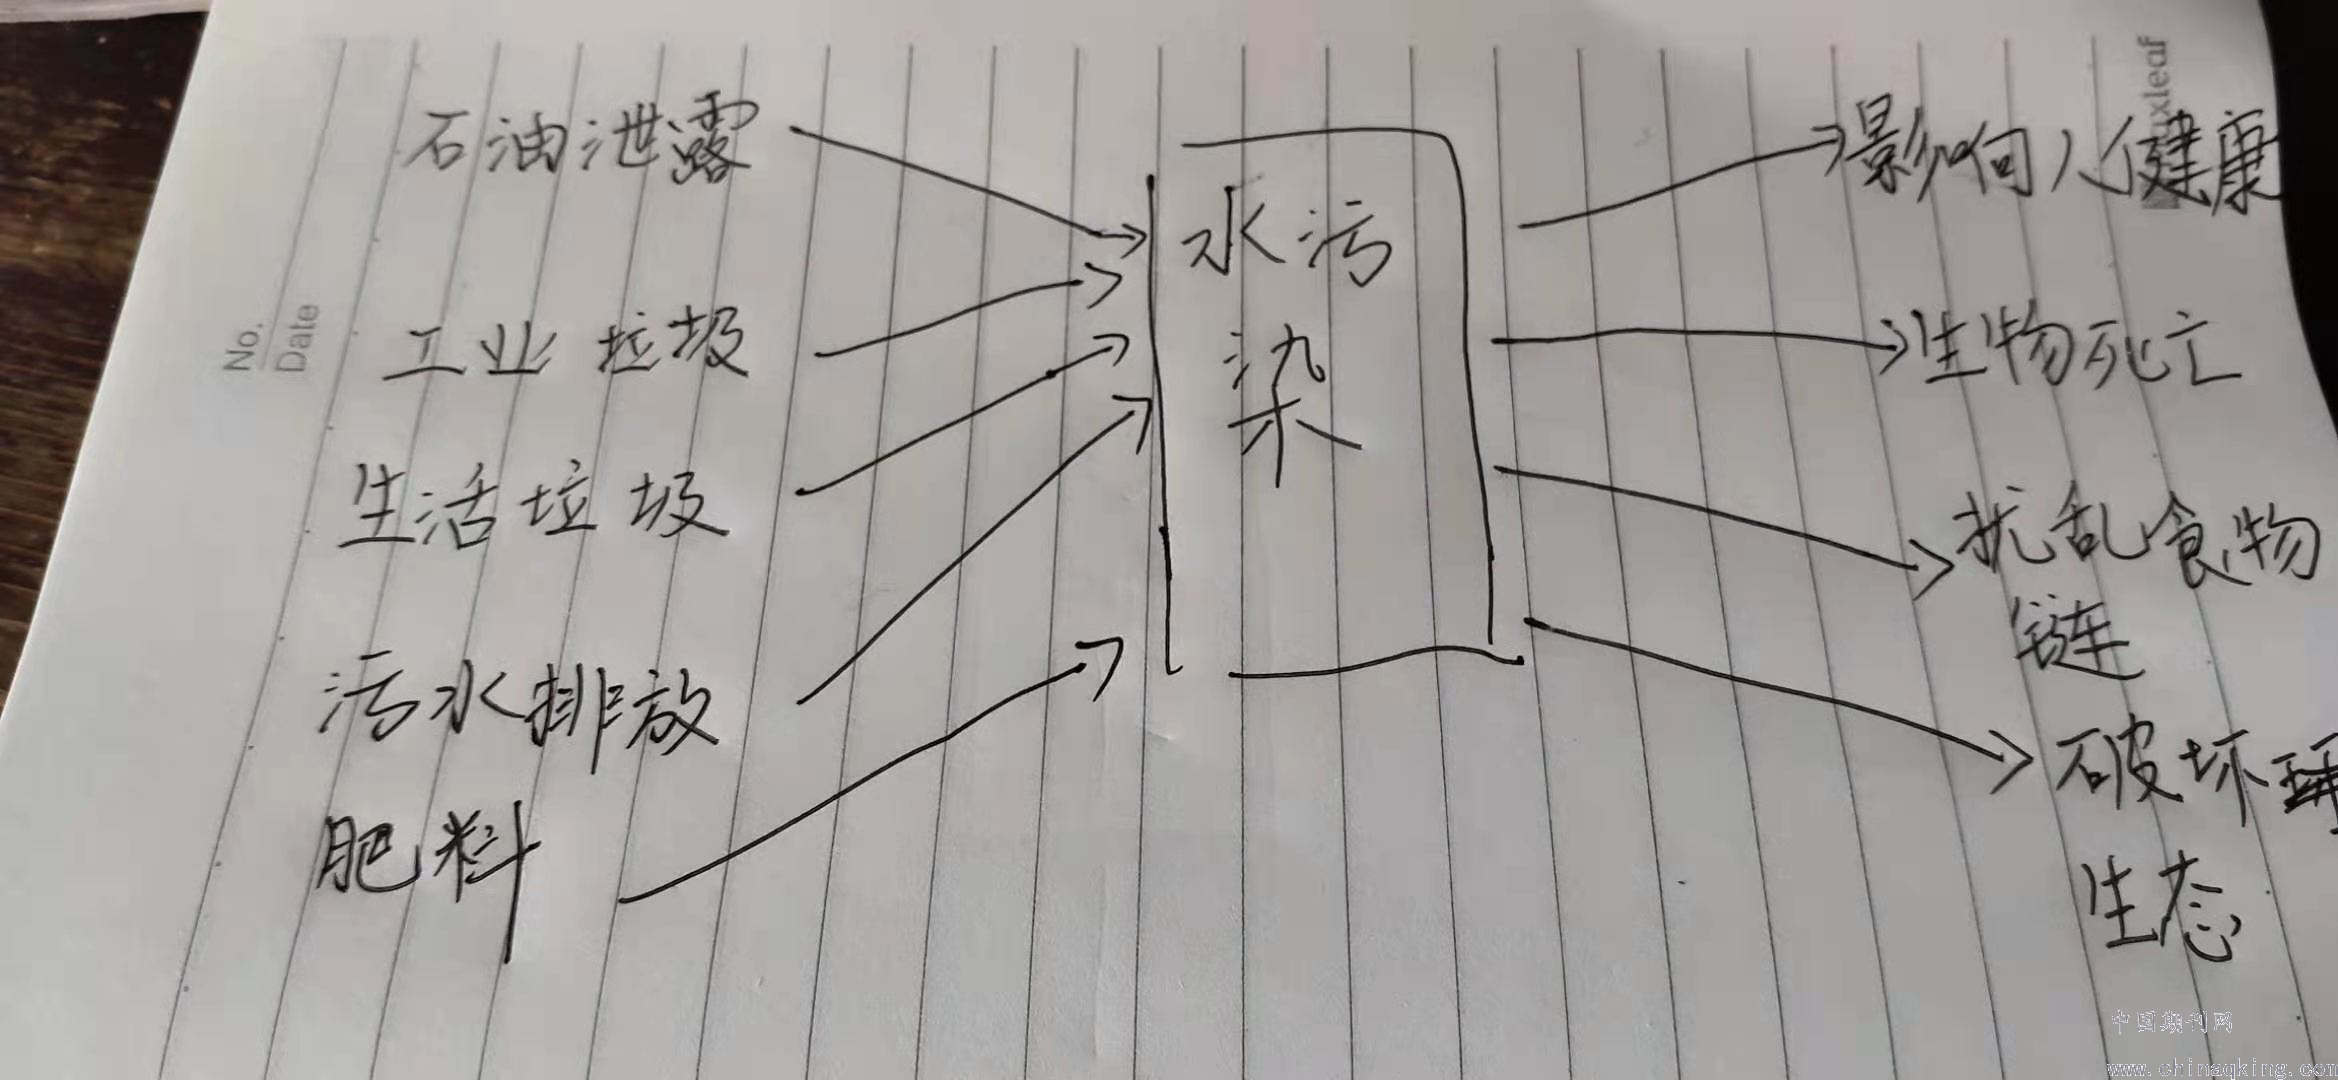 石油泄露
工业垃圾
生活垃圾
污水排放
肥料
水污
染
影响人健康
生物死亡
扰乱食物
链
破坏
生态
No.
Date
xleaf
中国期刊网
www.chinaqking.com